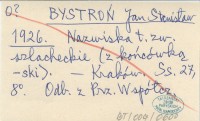 O?
BYSTROŃ Jan Stanisław
1926. Nazwiska t. zw.
szlacheckie (z końcówką
-ski). — Kraków, Ss. 27,
8º. Odb. z Prz. Współcz.